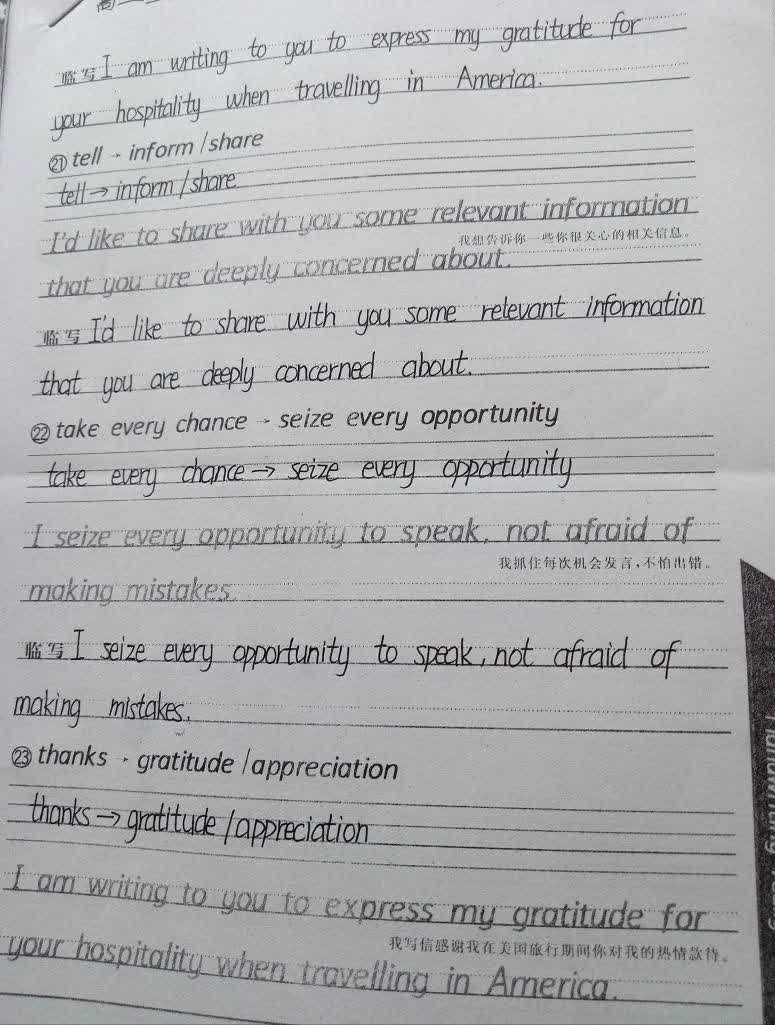 临写 I am writing to you to express my gratitude for
your hospitality when travelling in America.
㉑ tell → inform/share
tell → inform/share
I'd like to share with you some relevant information
我想告诉你一些你很关心的相关信息。
that you are deeply concerned about.
临写 I'd like to share with you some relevant information
that you are deeply concerned about.
㉒ take every chance → seize every opportunity
take every chance → seize every opportunity
I seize every opportunity to speak, not afraid of
我抓住每次机会发言,不怕出错。
making mistakes.
临写 I seize every opportunity to speak, not afraid of
making mistakes.
㉓ thanks → gratitude/appreciation
thanks → gratitude/appreciation
I am writing to you to express my gratitude for
我写信感谢我在美国旅行期间你对我的热情款待。
your hospitality when travelling in America.